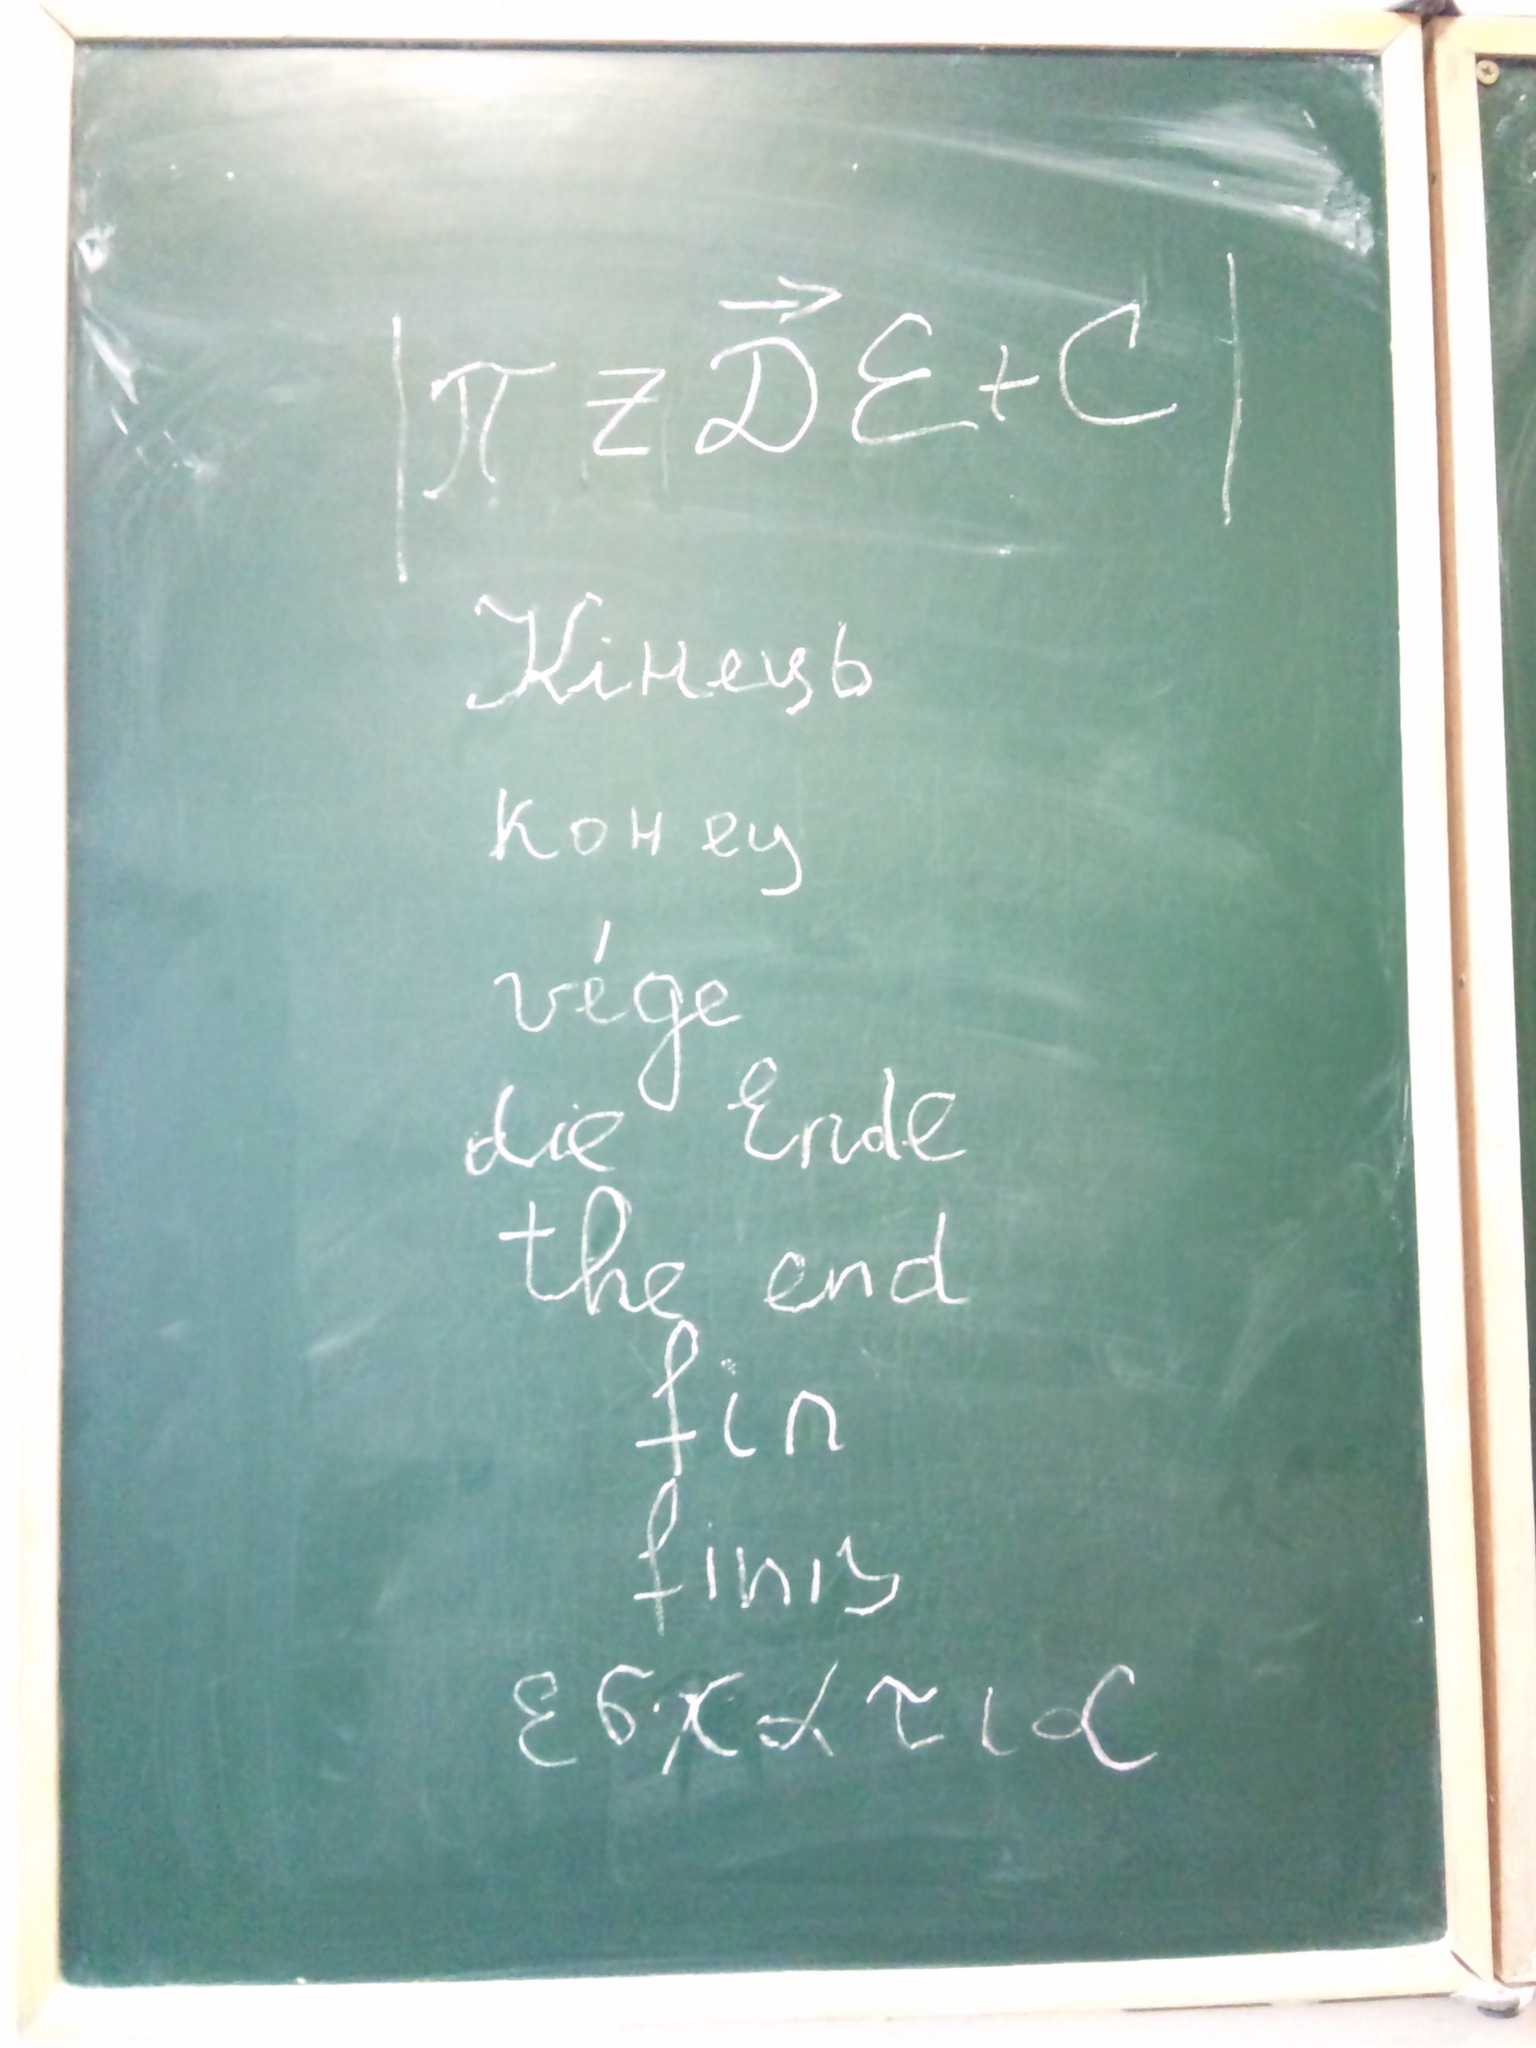 |π z D⃗ Ɛ + C|
Кінець
конец
vége
die Ende
the end
fin
finis
εσχατια